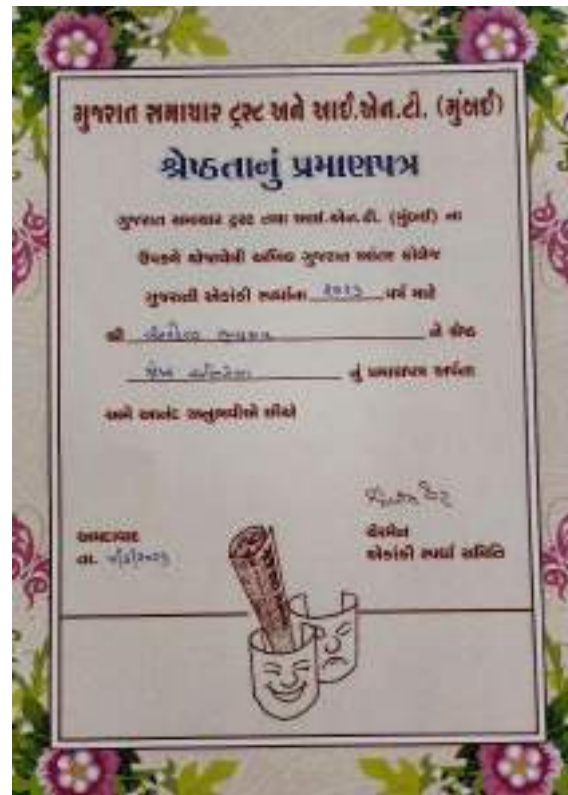 ગુજરાત સમાચાર ટ્રસ્ટ અને આઈ.એન.ટી. (મુંબઈ)
શ્રેષ્ઠતાનું પ્રમાણપત્ર
ગુજરાત સમાચાર ટ્રસ્ટ તથા આઈ.એન.ટી. (મુંબઈ) ના
ઉપક્રમે યોજાયેલી અખિલ ગુજરાત આંતર કોલેજ
ગુજરાતી એકાંકી સ્પર્ધાના વર્ષ માટે
શ્રી ને શ્રેષ્ઠ
નું પ્રમાણપત્ર અર્પતા
અમે આનંદ અનુભવીએ છીએ
અમદાવાદ
તા.
ચેરમેન
એકાંકી સ્પર્ધા સમિતિ